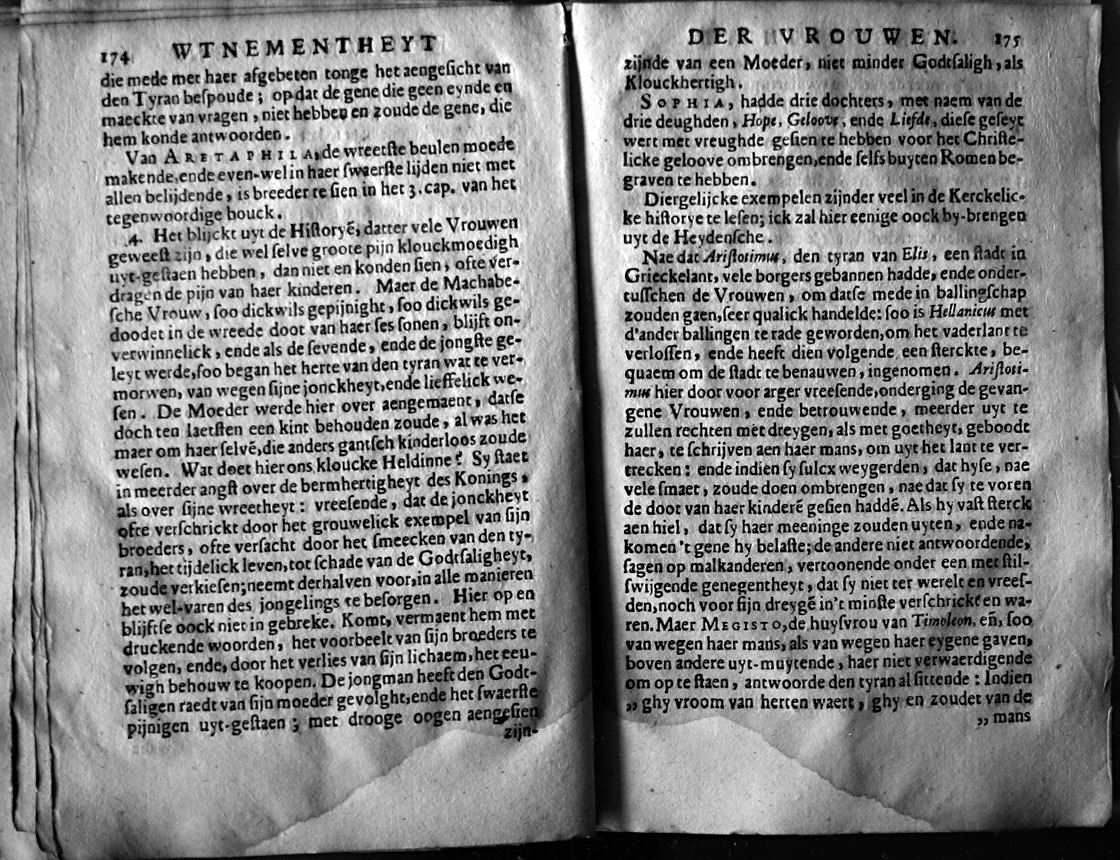 174 WTNEMENTHEYT
die mede met haer afgebeten tonge het aengeſicht van
den Tyran beſpoude; op dat de gene die geen eynde en
maeckte van vragen, niet hebben en zoude de gene, die
hem konde antwoorden.
Van ARETAPHILA, de wreetſte beulen moede
makende, ende even-wel in haer ſwaerſte lijden niet met
allen belijdende, is breeder te ſien in het 3. cap. van het
tegenwoordige bouck.
4. Het blijckt uyt de Hiſtoryē, datter vele Vrouwen
geweeſt zijn, die wel ſelve groote pijn klouckmoedigh
uyt-geſtaen hebben, dan niet en konden ſien, ofte ver-
dragen de pijn van haer kinderen. Maer de Machabe-
ſche Vrouw, ſoo dickwils gepijnight, ſoo dickwils ge-
doodet in de wreede doot van haer ſes ſonen, blijft on-
verwinnelick, ende als de ſevende, ende de jongſte ge-
leyt werde, ſoo began het herte van den tyran wat te ver-
morwen, van wegen ſijne jonckheyt, ende lieffelick we-
ſen. De Moeder werde hier over aengemaent, datſe
doch ten laetſten een kint behouden zoude, al was het
maer om haer ſelvē, die anders gantſch kinderloos zoude
weſen. Wat doet hier ons kloucke Heldinne? Sy ſtaet
in meerder angſt over de bermhertigheyt des Konings,
als over ſijne wreetheyt: vreeſende, dat de jonckheyt
ofte verſchrickt door het grouwelick exempel van ſijn
broeders, ofte verſacht door het ſmeecken van den ty-
ran, het tijdelick leven, tot ſchade van de Godtſaligheyt,
zoude verkieſen; neemt derhalven voor, in alle manieren
het wel-varen des jongelings te beſorgen. Hier op en
blijftſe oock niet in gebreke. Komt, vermaent hem met
druckende woorden, het voorbeelt van ſijn broeders te
volgen, ende, door het verlies van ſijn lichaem, het eeu-
wigh behouw te koopen. De jongman heeft den Godt-
ſaligen raedt van ſijn moeder gevolght, ende het ſwaerſte
pijnigen uyt-geſtaen; met drooge oogen aengeſien
zijn-
DER VROUWEN. 175
zijnde van een Moeder, niet minder Godtſaligh, als
Klouckhertigh.
SOPHIA, hadde drie dochters, met naem van de
drie deughden, Hope, Geloove, ende Liefde, dieſe geſeyt
wert met vreughde geſien te hebben voor het Chriſte-
licke geloove ombrengen, ende ſelfs buyten Romen be-
graven te hebben.
Diergelijcke exempelen zijnder veel in de Kerckelic-
ke hiſtorye te leſen; ick zal hier eenige oock by-brengen
uyt de Heydenſche.
Nae dat Ariſtotimus, den tyran van Elis, een ſtadt in
Grieckelant, vele borgers gebannen hadde, ende onder-
tuſſchen de Vrouwen, om datſe mede in ballingſchap
zouden gaen, ſeer qualick handelde: ſoo is Hellanicus met
d'ander ballingen te rade geworden, om het vaderlant te
verloſſen, ende heeft dien volgende een ſterckte, be-
quaem om de ſtadt te benauwen, ingenomen. Ariſtoti-
mus hier door voor arger vreeſende, onderging de gevan-
gene Vrouwen, ende betrouwende, meerder uyt te
zullen rechten met dreygen, als met goetheyt, geboodt
haer, te ſchrijven aen haer mans, om uyt het lant te ver-
trecken: ende indien ſy ſulcx weygerden, dat hyſe, nae
vele ſmaet, zoude doen ombrengen, nae dat ſy te voren
de doot van haer kinderē geſien haddē. Als hy vaſt ſterck
aen hiel, dat ſy haer meeninge zouden uyten, ende na-
komen 't gene hy belaſte; de andere niet antwoordende,
ſagen op malkanderen, vertoonende onder een met ſtil-
ſwijgende genegentheyt, dat ſy niet ter werelt en vreeſ-
den, noch voor ſijn dreygē in't minſte verſchrickt en wa-
ren. Maer MEGISTO, de huyſvrou van Timoleon, eñ, ſoo
van wegen haer mans, als van wegen haer eygene gaven,
boven andere uyt-muytende, haer niet verwaerdigende
om op te ſtaen, antwoorde den tyran al ſittende: Indien
„ ghy vroom van herten waert, ghy en zoudet van de
„ mans